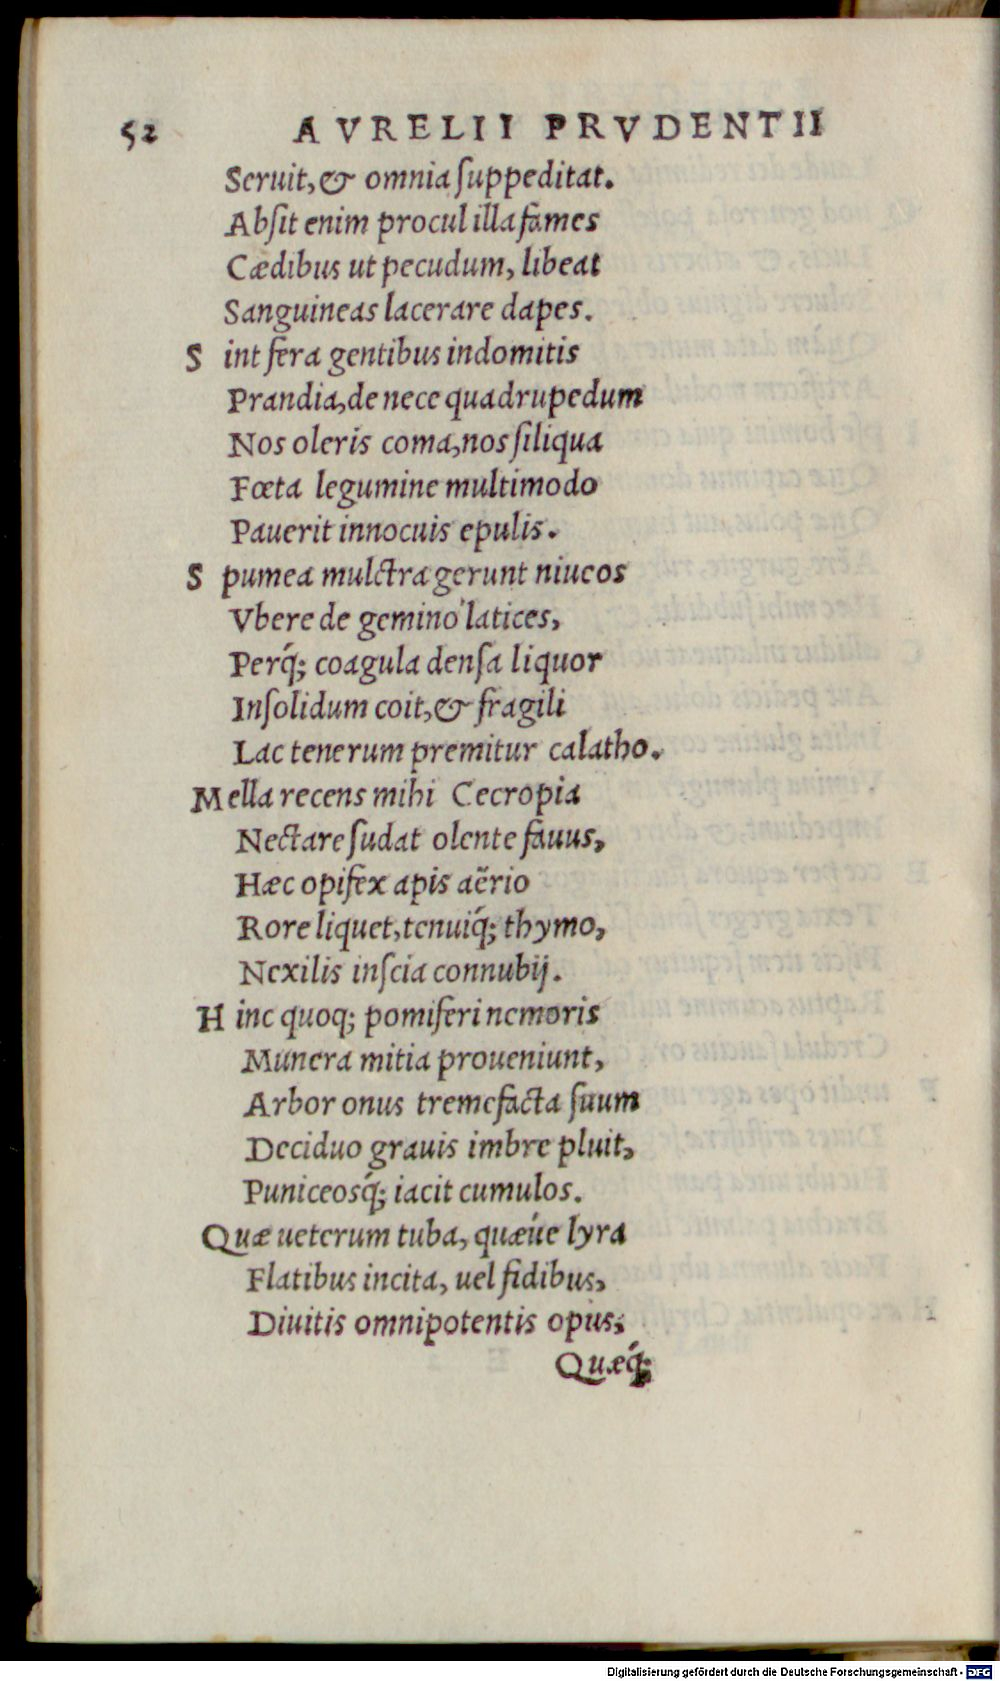 52 AVRELII PRVDENTII
Seruit, & omnia ſuppeditat.
Abſit enim procul illa fames
Cædibus ut pecudum, libeat
Sanguineas lacerare dapes.
S int fera gentibus indomitis
Prandia, de nece quadrupedum
Nos oleris coma, nos ſiliqua
Fœta legumine multimodo
Pauerit innocuis epulis.
S pumea mulctra gerunt niueos
Vbere de gemino latices,
Perq́; coagula denſa liquor
Inſolidum coit, & fragili
Lac tenerum premitur calatho.
M ella recens mihi Cecropia
Nectare ſudat olente fauus,
Hæc opifex apis aërio
Rore liquet, tenuiq́; thymo,
Nexilis inſcia connubij.
H inc quoq; pomiferi nemoris
Munera mitia proueniunt,
Arbor onus tremefacta ſuum
Deciduo grauis imbre pluit,
Puniceosq́; iacit cumulos.
Quæ ueterum tuba, quæúe lyra
Flatibus incita, uel fidibus,
Diuitis omnipotentis opus,
Quæq́;
Digitalisierung gefördert durch die Deutsche Forschungsgemeinschaft - DFG